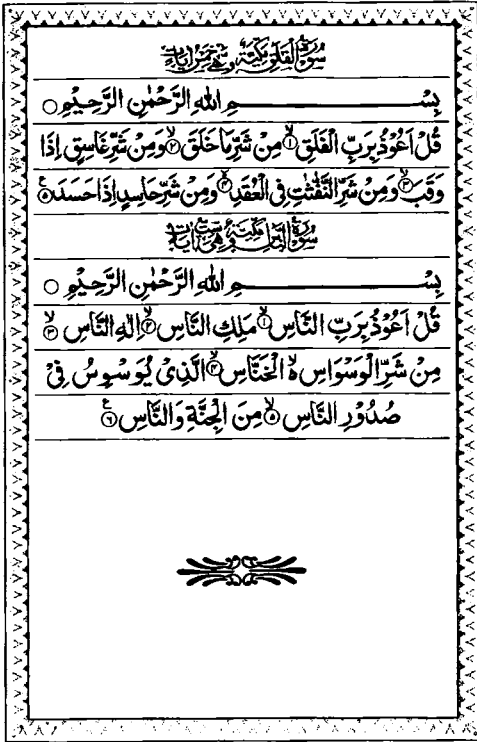 سُوْرَةُ الْفَلَقِ مَكِّيَّةٌ وَّهِىَ خَمْسُ اٰيَاتٍ
بِسْــــــــــــــــــمِ اللهِ الرَّحْمٰنِ الرَّحِيْمِ ○
قُلْ اَعُوْذُ بِرَبِّ الْفَلَقِ ۙ﴿۱﴾ مِنْ شَرِّ مَا خَلَقَ ۙ﴿۲﴾ وَمِنْ شَرِّ غَاسِقٍ اِذَا
وَقَبَ ۙ﴿۳﴾ وَمِنْ شَرِّ النَّفّٰثٰتِ فِى الْعُقَدِ ۙ﴿۴﴾ وَمِنْ شَرِّ حَاسِدٍ اِذَا حَسَدَ ﴿۵﴾ ع
سُوْرَةُ النَّاسِ مَكِّيَّةٌ وَّهِىَ سِتُّ اٰيَاتٍ
بِسْــــــــــــــــــمِ اللهِ الرَّحْمٰنِ الرَّحِيْمِ ○
قُلْ اَعُوْذُ بِرَبِّ النَّاسِ ۙ﴿۱﴾ مَلِكِ النَّاسِ ۙ﴿۲﴾ اِلٰهِ النَّاسِ ۙ﴿۳﴾
مِنْ شَرِّ الْوَسْوَاسِ ۙ۬ الْخَنَّاسِ ۙ﴿۴﴾ الَّذِىْ يُوَسْوِسُ فِىْ
صُدُوْرِ النَّاسِ ۙ﴿۵﴾ مِنَ الْجِنَّةِ وَالنَّاسِ ﴿۶﴾ ع